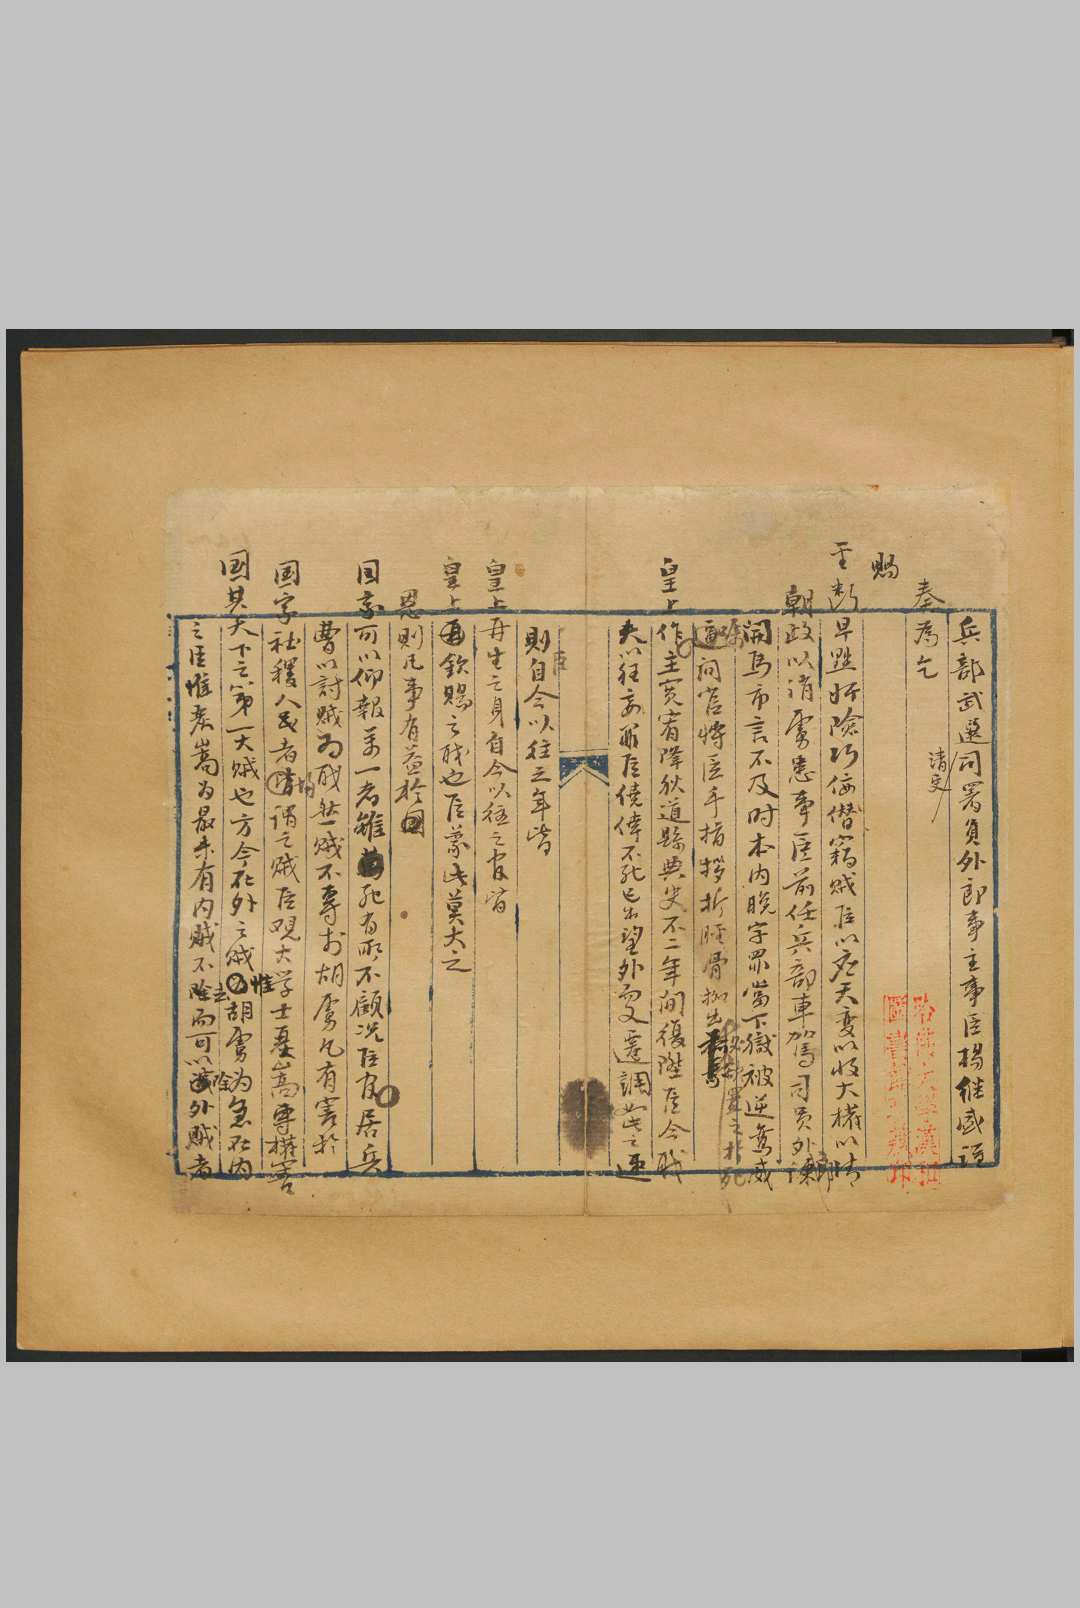 兵部武選司署員外郎事主事臣楊继盛謹
奏為乞
清史
賜
圣断早誅奸險巧佞僣竊賊臣以应天变以收大權以清
朝政以消虜患事臣前任兵部車駕司員外郎諫
開馬市言不及时本内脱字罪當下獄被逆鸞威
逼問官将臣手指拶折脛骨
皇上作主寛宥降狄道縣典史不二年間復陞臣今职
夫以狂妄罪臣僥倖不死已出望外而又遷調如此之速
則自今以往之年皆
皇上再生之身自今以往之官皆
皇上欽賜之职也臣蒙此莫大之
恩則凡事有益於國
国家可以仰報萬一者雖死有所不顧况臣官居兵
曹以討賊为职然賊不專於胡虜凡有害於
国家社稷人民者均謂之賊臣覌大学士嚴嵩專權害
国其天下之第一大賊也方今在外之賊惟胡虜为急在内
之臣惟嚴嵩为最未有内賊不去而可以除外賊者
哈佛大學漢和
圖書